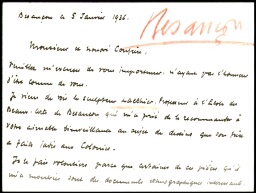 Besançon le 5 Janvier 1936.
Besançon
Monsieur et honoré Confrère,
Veuillez m'excuser de vous importuner, n'ayant pas l'honneur
d'être connu de vous.
Je viens de voir le sculpteur Professeur à l'Ecole des
Beaux-Arts de Besançon qui m'a prié de le recommander à
votre aimable bienveillance au sujet des dessins que
a faits aux Colonies.
Je le fais volontiers parce que certaines de ces pièces qu'il
m'a montrées sont des documents ethnographiques intéressants